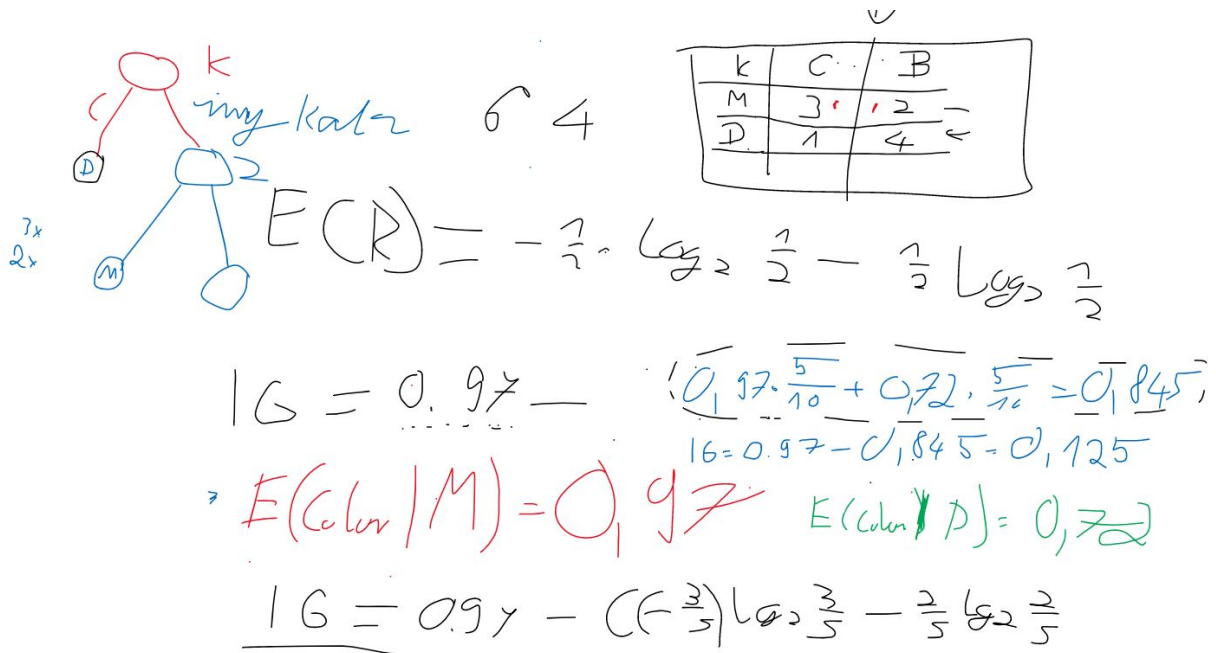 K
C
iny kolor
6 4
K C B
M 3 2
D 1 4
D
2
3x
2x
M
E(R) = - 1/2 · log₂ 1/2 - 1/2 log₂ 1/2
IG = 0.97 -
(0,97 · 5/10 + 0,72 · 5/10 = 0,845)
IG = 0.97 - 0,845 = 0,125
E(Color | M) = 0,97
E(Color | D) = 0,72
IG = 0.97 - ((-3/5) log₂ 3/5 - 2/5 log₂ 2/5